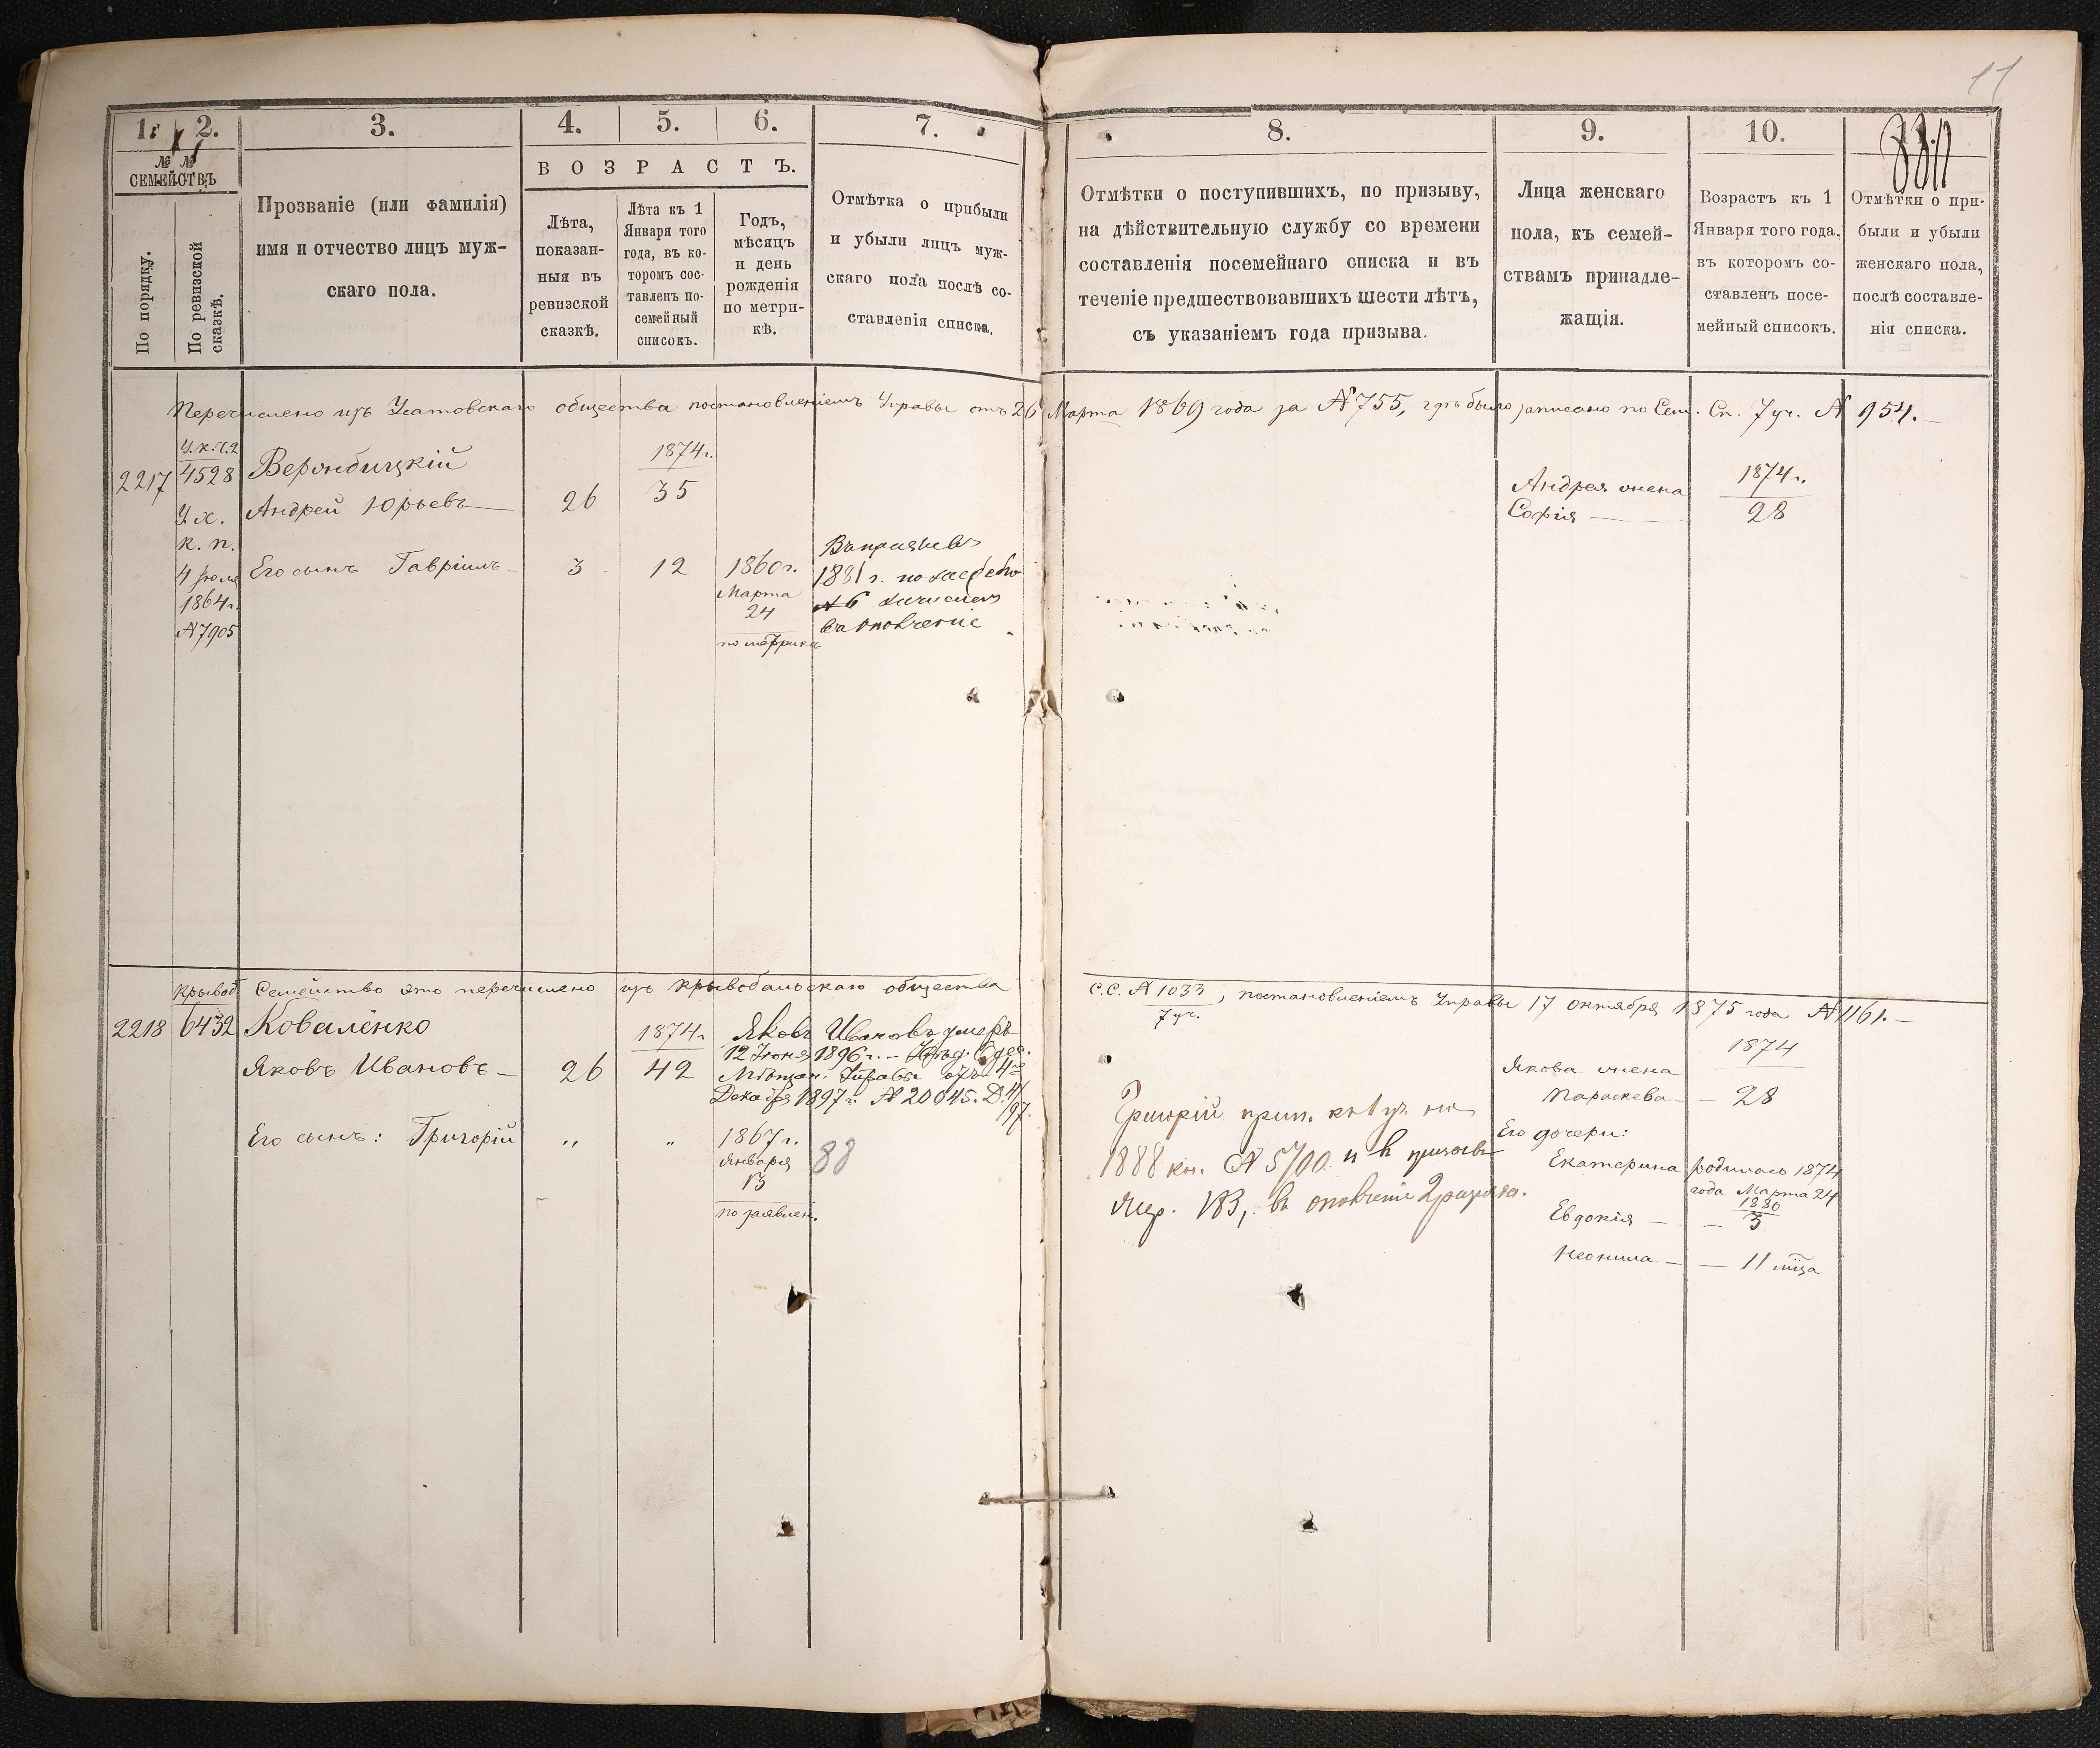 11
1.
2.
3.
4.
5.
6.
7.
8.
9.
10.
11.
№ №
СЕМЕЙСТВЪ
По порядку.
По ревизской
сказкѣ.
Прозваніе (или фамилія)
имя и отчество лицъ муж-
скаго пола.
ВОЗРАСТЪ.
Лѣта,
показан-
ныя въ
ревизской
сказкѣ.
Лѣта къ 1
Января того
года, въ ко-
торомъ сос-
тавленъ по-
семейный
списокъ.
Годъ,
мѣсяцъ
и день
рожденія
по метри-
кѣ.
Отмѣтка о прибыли
и убыли лицъ муж-
скаго пола послѣ со-
ставленія списка.
Отмѣтки о поступившихъ, по призыву,
на дѣйствительную службу со времени
составленія посемейнаго списка и въ
теченіе предшествовавшихъ шести лѣтъ,
съ указаніемъ года призыва.
Лица женскаго
пола, къ семей-
ствамъ принадле-
жащія.
Возрастъ къ 1
Января того года,
въ которомъ со-
ставленъ посе-
мейный списокъ.
Отмѣтки о при-
были и убыли
женскаго пола,
послѣ составле-
нія списка.
Перечислено изъ Усатовскаго общества постановленіемъ Управы отъ 26 Марта 1869 года за № 755, гдѣ было записано по Сем. Сп. 7 уч. № 954.
2217
4528
к. п.
4 Іюля
1864 г.
№ 7905
Андрей Юрьевъ
26
1874 г.
35
Его сынъ Гавріилъ
3
12
1860 г.
Марта
24
по метрикѣ
1881 г. по
№ 6
въ ополченіе
Андрея жена
Софія
1874 г.
28
Семейство это перечислено изъ Крывобальскаго общества С.С. № 1033 / 7 уч., постановленіемъ Управы 17 Октября 1875 года № 1161.
2218
Крывоб
6432
Коваленко
Яковъ Ивановъ
26
1874 г.
42
Яковъ Ивановъ умеръ
12 Іюня 1896 г. –
Мѣщан. Управы отъ 4го
Декабря 1897 г. № 20045.
Его сынъ: Григорій
„
„
1867 г.
Января
13
по заявлен.
88
Григорій прип. къ 1 уч. на
1888 № 5700 и
въ ополченіе 2 разряда.
Якова жена
Параскева
1874
28
Его дочери:
Екатерина
родилась 1874
года Марта 24
Евдокія
1880
3
Неонила
11 мѣца